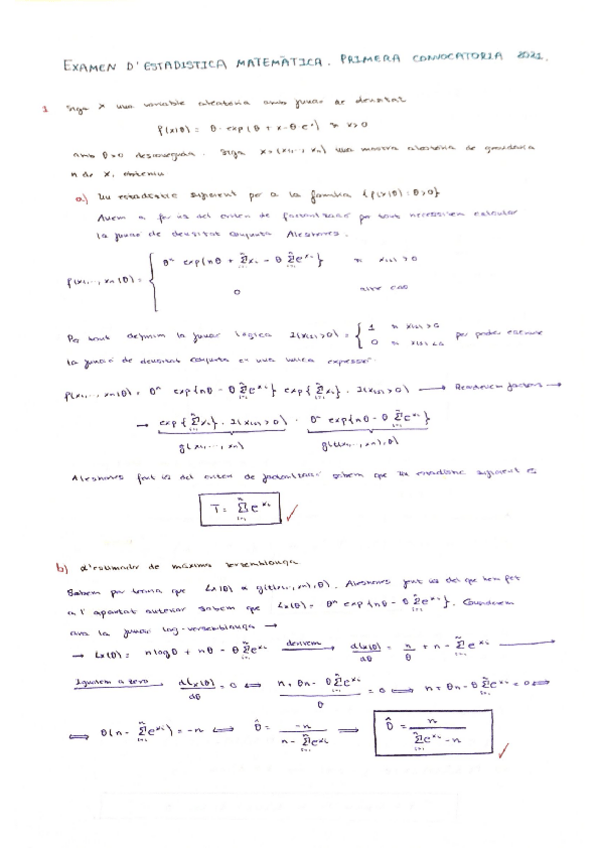 EXAMEN D'ESTADISTICA MATEMÀTICA. PRIMERA CONVOCATORIA 2021.
1 Siga X una variable aleatoria amb funció de densitat
f(x|θ) = θ · exp(θ + x - θ e^x) si x>0
amb θ>0 desconeguda. Siga x=(x1,...,xn) una mostra aleatoria de grandaria
n de X, obteniu
a) Un estadístic suficient per a la familia {f(x|θ) : θ>0}
Avem a fer ús del criteri de factorització per tant necessitem calcular
la funció de densitat conjunta. Aleshores.
f(x1,..., xn|θ) = { θ^n exp{nθ + Σ_{i=1}^n xi - θ Σ_{i=1}^n e^{xi}} si x(1) > 0
0 altre cas
Per tant definim la funció lògica I(x(1)>0) = { 1 si x(1)>0 per poder escriure
0 si x(1)≤0
la funció de densitat conjunta en una única expressió.
f(x1,..., xn|θ) = θ^n exp{nθ - θ Σ_{i=1}^n e^{xi}} exp{Σ_{i=1}^n xi} · I(x(1)>0) → Reordenem factors →
→ exp{Σ_{i=1}^n xi} · I(x(1)>0) · θ^n exp{nθ - θ Σ_{i=1}^n e^{xi}}
g(x1,..., xn) g(t(x1,..., xn), θ)
Aleshores fent ús del criteri de factorització sabem que un estadístic suficient és
T = Σ_{i=1}^n e^{xi} ✓
b) L'estimador de màxima versemblança
Sabem per teoria que Lx(θ) ∝ g(t(x1,..., xn), θ). Aleshores fent ús del que hem fet
a l'apartat anterior sabem que Lx(θ) = θ^n exp{nθ - θ Σ_{i=1}^n e^{xi}}. Considerem
ara la funció log-versemblança →
→ lx(θ) = n log θ + nθ - θ Σ_{i=1}^n e^{xi} derivem → dlx(θ)/dθ = n/θ + n - Σ_{i=1}^n e^{xi} →
Igualem a zero → dlx(θ)/dθ = 0 ⟺ (n + θn - θ Σ_{i=1}^n e^{xi})/θ = 0 ⟺ n + θn - θ Σ_{i=1}^n e^{xi} = 0 ⟺
⟺ θ(n - Σ_{i=1}^n e^{xi}) = -n ⟺ θ̂ = -n/(n - Σ_{i=1}^n e^{xi}) ⟹ θ̂ = n/(Σ_{i=1}^n e^{xi} - n) ✓